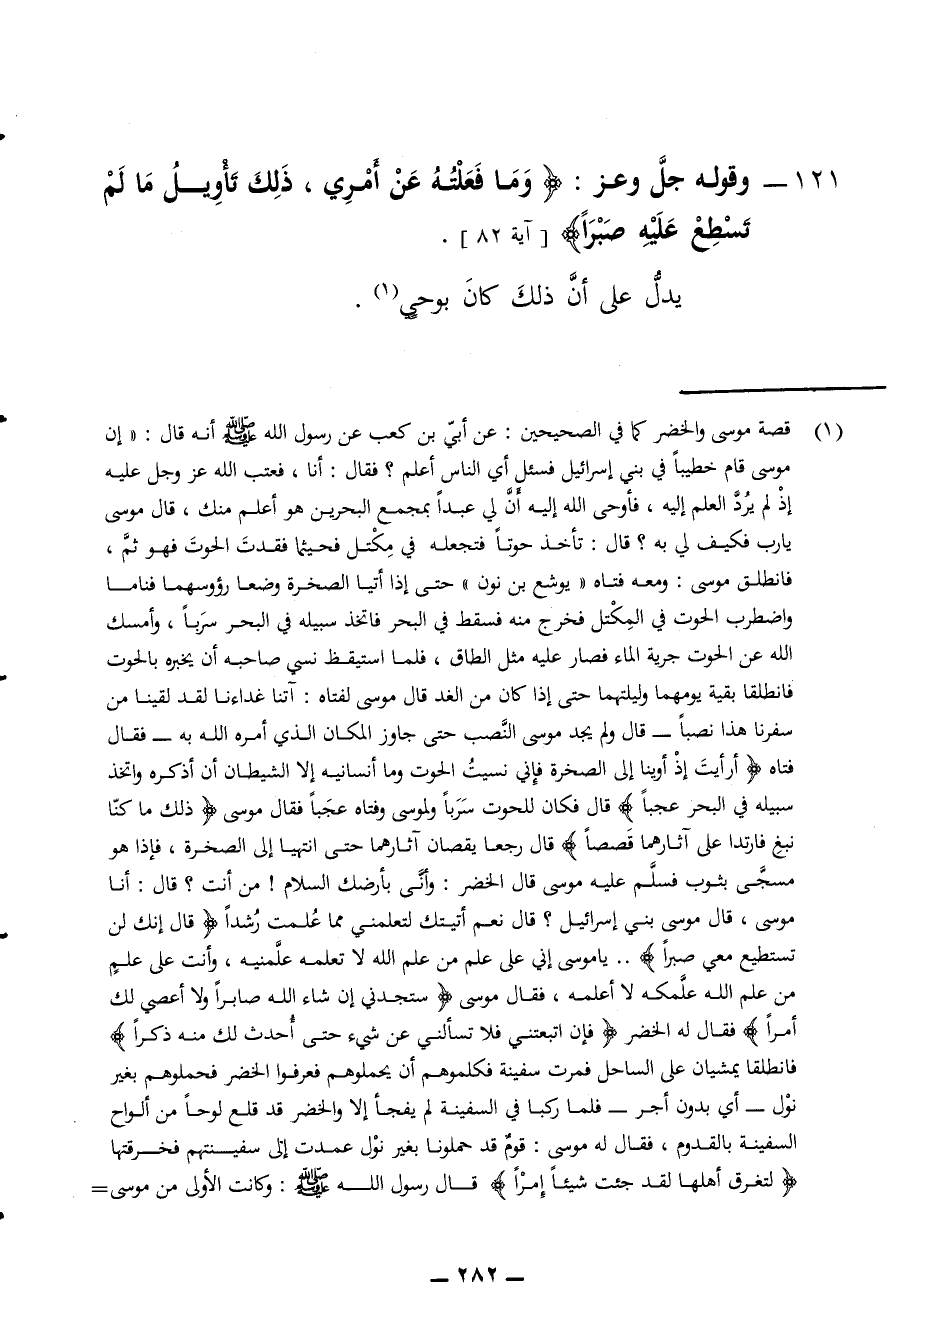 ١٢١ ــ وقوله جلَّ وعز : ﴿ وَمَا فَعَلْتُهُ عَنْ أَمْرِي ، ذَلِكَ تَأْوِيلُ مَا لَمْ
تَسْطِعْ عَلَيْهِ صَبْرَاً ﴾ [ آية ٨٢ ] .
يدلُّ على أنَّ ذلكَ كانَ بوحيٍ(١) .
(١) قصة موسى والخضر كما في الصحيحين : عن أبيّ بن كعب عن رسول الله ﷺ أنه قال : « إن
موسى قام خطيباً في بني إسرائيل فسئل أي الناس أعلم ؟ فقال : أنا ، فعتب الله عز وجل عليه
إذْ لم يرُدَّ العلم إليه ، فأوحى الله إليه أنَّ لي عبداً بمجمع البحرين هو أعلم منك ، قال موسى
يارب فكيف لي به ؟ قال : تأخذ حوتاً فتجعله في مِكْتل فحيثما فقدتَ الحوتَ فهو ثمَّ ،
فانطلق موسى : ومعه فتاه « يوشع بن نون » حتى إذا أتيا الصخرة وضعا رؤوسهما فناما
واضطرب الحوت في المِكْتل فخرج منه فسقط في البحر فاتخذ سبيله في البحر سرَباً ، وأمسك
الله عن الحوت جرية الماء فصار عليه مثل الطاق ، فلما استيقظ نسي صاحبه أن يخبره بالحوت
فانطلقا بقية يومهما وليلتهما حتى إذا كان من الغد قال موسى لفتاه : آتنا غداءنا لقد لقينا من
سفرنا هذا نصباً ــ قال ولم يجد موسى النَّصب حتى جاوز المكان الذي أمره الله به ــ فقال
فتاه ﴿ أرأيتَ إذْ أوينا إلى الصخرة فإني نسيتُ الحوت وما أنسانيه إلا الشيطان أن أذكره واتخذ
سبيله في البحر عجباً ﴾ قال فكان للحوت سرَباً ولموسى وفتاه عجَباً فقال موسى ﴿ ذلك ما كنّا
نبغ فارتدا على آثارهما قَصصاً ﴾ قال رجعا يقصان آثارهما حتى انتهيا إلى الصخرة ، فإذا هو
مسجَّى بثوب فسلَّم عليه موسى قال الخضر : وأنَّى بأرضك السلام ! من أنت ؟ قال : أنا
موسى ، قال موسى بني إسرائيل ؟ قال نعم أتيتك لتعلمني مما عُلمت رُشداً ﴿ قال إنك لن
تستطيع معي صبراً ﴾ .. ياموسى إني على علم من علم الله لا تعلمه علَّمنيه ، وأنت على علمٍ
من علم الله علَّمكه لا أعلمه ، فقال موسى ﴿ ستجدني إن شاء الله صابراً ولا أعصي لك
أمراً ﴾ فقال له الخضر ﴿ فإن اتبعتني فلا تسألني عن شيء حتى أُحدث لك منه ذكراً ﴾
فانطلقا يمشيان على الساحل فمرت سفينة فكلموهم أن يحملوهم فعرفوا الخضر فحملوهم بغير
نوْل ــ أي بدون أجر ــ فلما ركبا في السفينة لم يفجأ إلا والخضر قد قلع لوحاً من ألواح
السفينة بالقدوم ، فقال له موسى : قومٌ قد حملونا بغير نوْل عمدت إلى سفينتهم فخرقتها
﴿ لتغرق أهلها لقد جئت شيئاً إمْراً ﴾ قال رسول الله ﷺ : وكانت الأولى من موسى=
ــ ٢٨٢ ــ